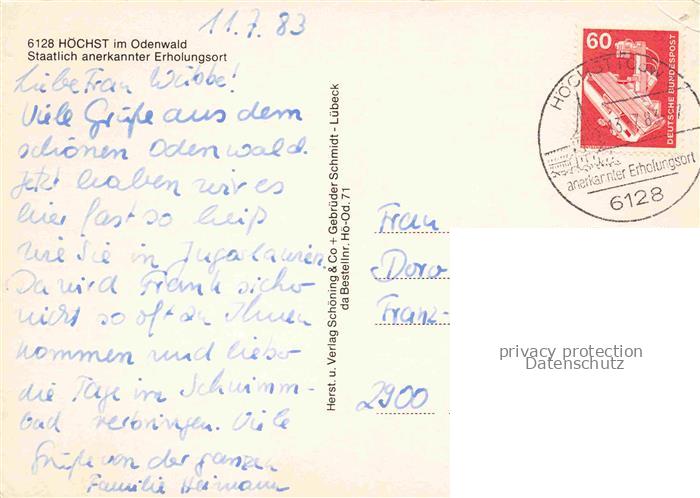 11.7.83
6128 HÖCHST im Odenwald
Staatlich anerkannter Erholungsort
Liebe Frau Wübbe!
Viele Grüße aus dem
schönen Odenwald.
Jetzt haben wir es
hier fast so heiß
wie Sie in Jugoslawien.
Da wird Frank sicher
nicht so oft zu Ihnen
kommen und lieber
die Tage im Schwimm-
bad verbringen. Viele
Grüße von der ganzen
Familie Heimann
Herst. u. Verlag Schöning & Co + Gebrüder Schmidt - Lübeck
da Bestellnr. Hö-Od. 71
60
DEUTSCHE BUNDESPOST
HÖCHST
7.83
anerkannter Erholungsort
6128
Frau
Doro
Franz-
2900
privacy protection
Datenschutz